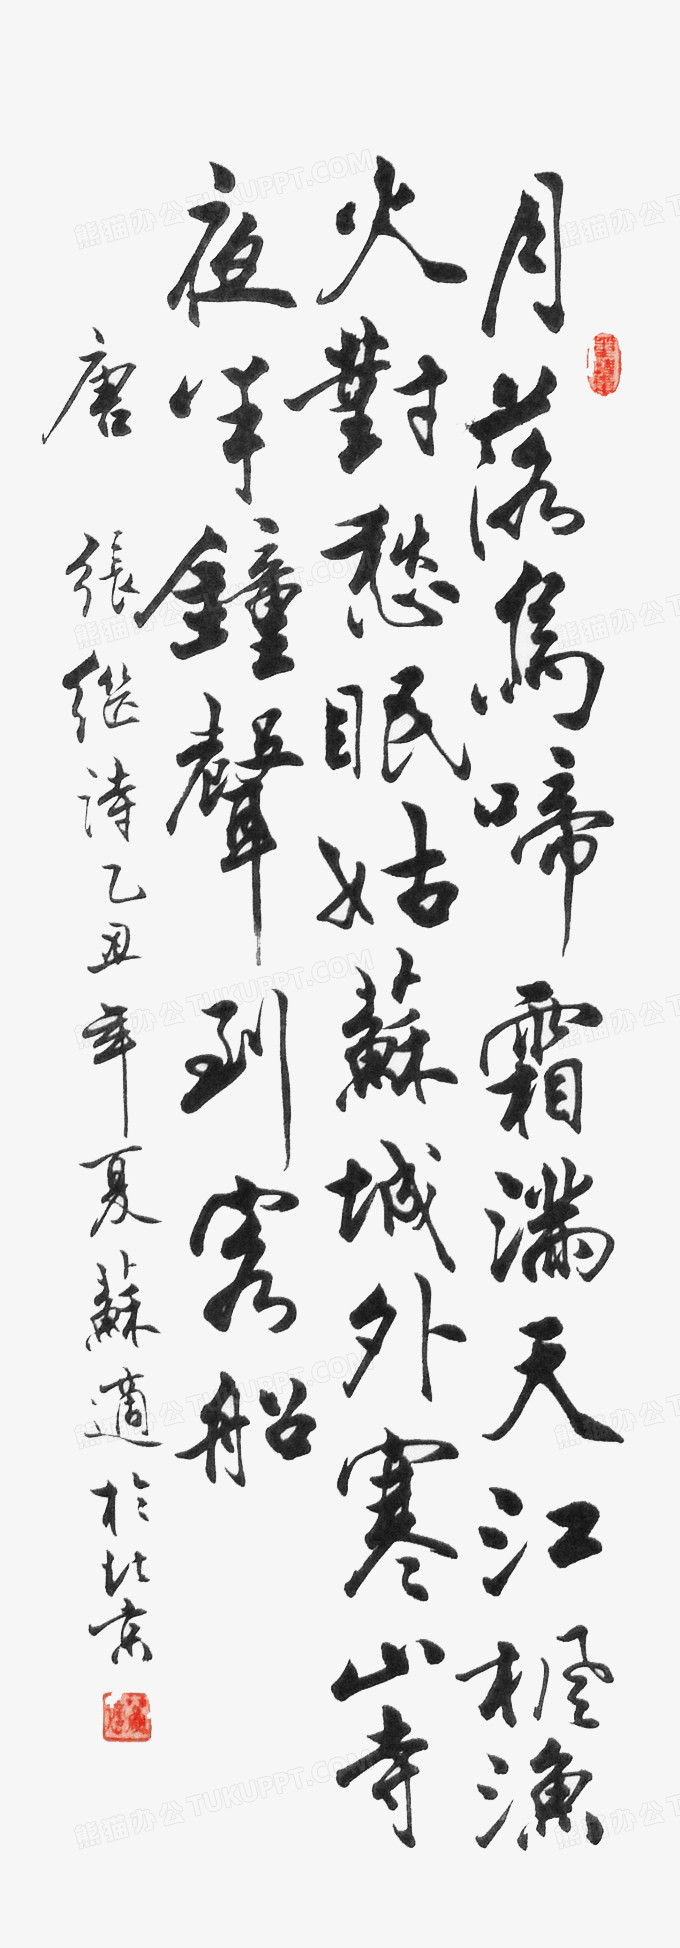 月落烏啼霜滿天江楓漁
火對愁眠姑蘇城外寒山寺
夜半鐘聲到客船
唐 張継詩乙丑年夏蘇適於北京
熊猫办公 TUKUPPT.COM